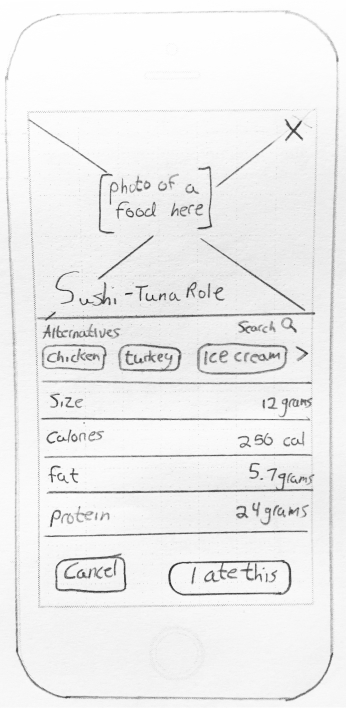 X
[photo of a
food here]
Sushi - Tuna Role
Alternatives Search
Chicken turkey Ice cream >
Size 12 grams
Calories 256 cal
fat 5.7 grams
protein 24 grams
Cancel I ate this